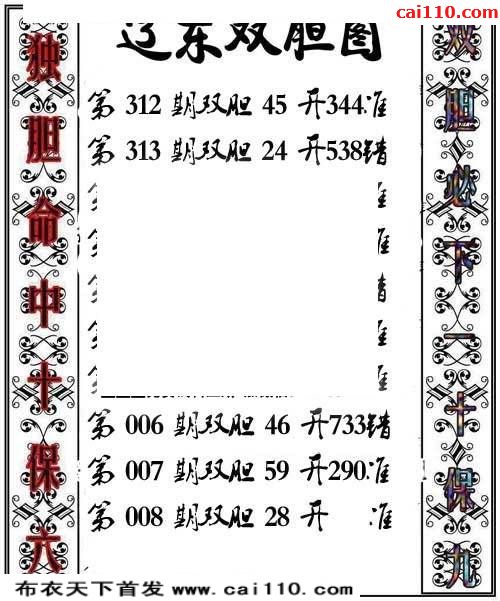 cai110.com
辽东双胆图
独胆命中十保六
双胆必下一十保九
第 312 期双胆 45 开344准
第 313 期双胆 24 开538错
准
准
错
准
准
第 006 期双胆 46 开733错
第 007 期双胆 59 开290准
第 008 期双胆 28 开 准
布衣天下首发 www.cai110.com